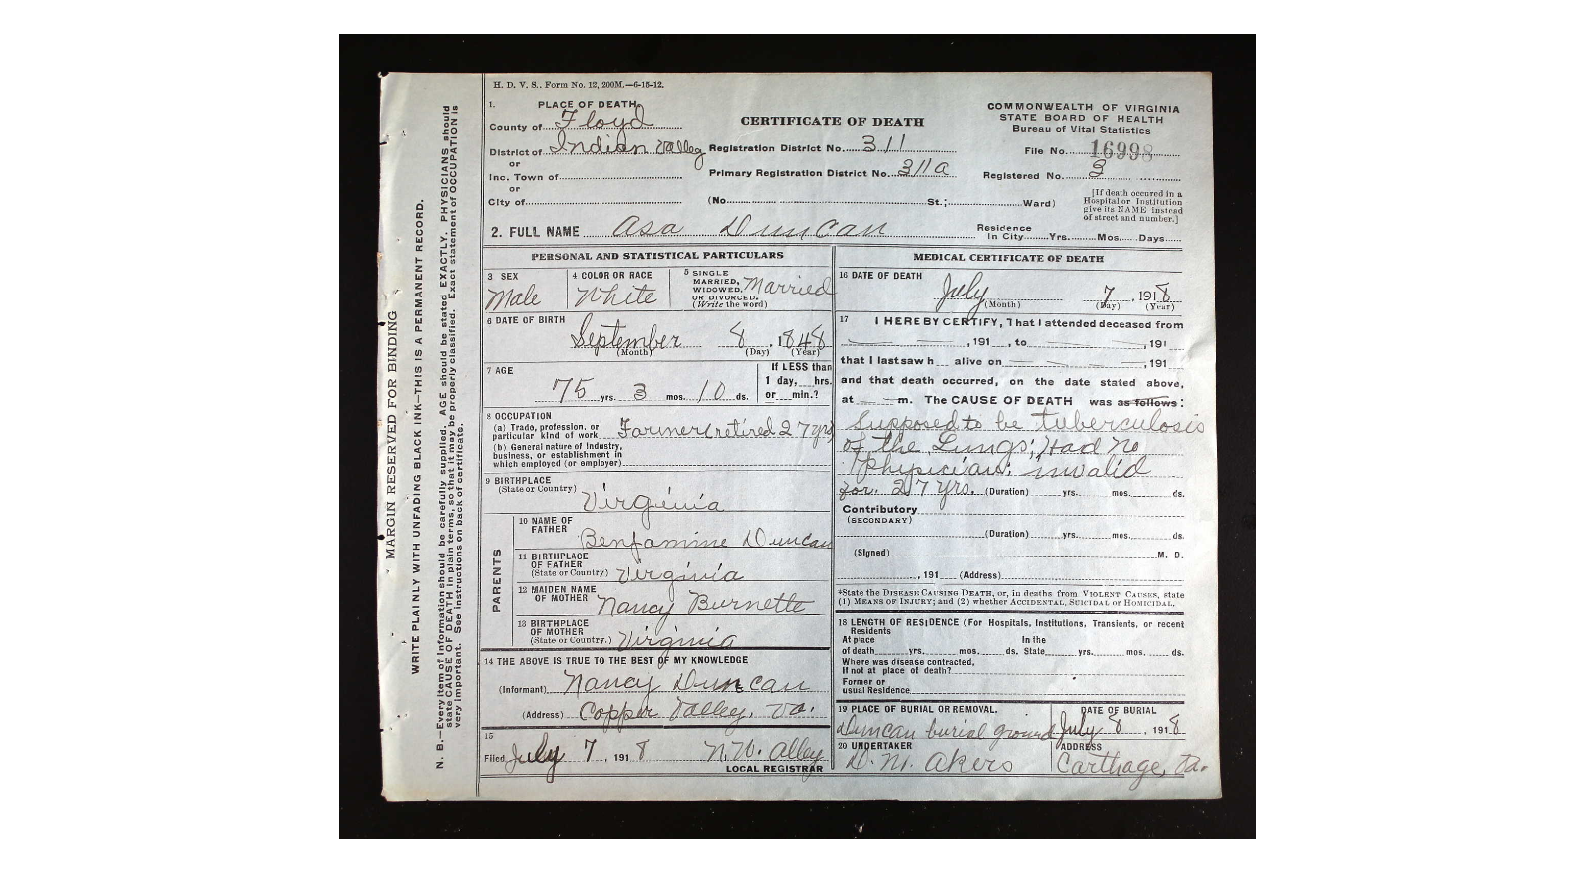 H. D. V. S.. Form No. 12, 200M.—6-15-12.
1. PLACE OF DEATH.
County of Floyd
District of Indian Valley
or
Inc. Town of
or
City of
CERTIFICATE OF DEATH
Registration District No. 311
Primary Registration District No. 311a
(No. St.; Ward)
COMMONWEALTH OF VIRGINIA
STATE BOARD OF HEALTH
Bureau of Vital Statistics
File No. 16998
Registered No. 3
[If death occured in a
Hospital or Institution
give its NAME instead
of street and number.]
2. FULL NAME Asa Duncan
Residence
In City Yrs. Mos. Days
PERSONAL AND STATISTICAL PARTICULARS
3 SEX
Male
4 COLOR OR RACE
White
5 SINGLE
MARRIED,
WIDOWED,
OR DIVORCED.
(Write the word)
Married
6 DATE OF BIRTH
September 8, 1848
(Month) (Day) (Year)
7 AGE
75 yrs. 3 mos. 10 ds.
If LESS than
1 day, hrs.
or min.?
8 OCCUPATION
(a) Trade, profession, or
particular kind of work Farmer (retired 27 yrs
(b) General nature of Industry,
business, or establishment in
which employed (or employer)
9 BIRTHPLACE
(State or Country) Virginia
PARENTS
10 NAME OF
FATHER
Benjamine Duncan
11 BIRTHPLACE
OF FATHER
(State or Country) Virginia
12 MAIDEN NAME
OF MOTHER Nancy Burnette
13 BIRTHPLACE
OF MOTHER
(State or Country.) Virginia
14 THE ABOVE IS TRUE TO THE BEST OF MY KNOWLEDGE
(Informant) Nancy Duncan
(Address) Copper Valley, Va.
15
Filed July 7, 1918 N. W. Alley
LOCAL REGISTRAR
MEDICAL CERTIFICATE OF DEATH
16 DATE OF DEATH
July 7, 1918
(Month) (Day) (Year)
17 I HEREBY CERTIFY, That I attended deceased from
, 191 , to , 191
that I last saw h alive on , 191
and that death occurred, on the date stated above,
at m. The CAUSE OF DEATH was as follows:
Supposed to be tuberculosis
of the Lungs; Had no
Physician; invalid
for 27 yrs. (Duration) yrs. mos. ds.
Contributory
(SECONDARY)
(Duration) yrs. mos. ds.
(Signed) M. D.
, 191 (Address)
*State the DISEASE CAUSING DEATH, or, in deaths from VIOLENT CAUSES, state
(1) MEANS OF INJURY; and (2) whether ACCIDENTAL, SUICIDAL or HOMICIDAL.
18 LENGTH OF RESIDENCE (For Hospitals, Institutions, Transients, or recent
Residents
At place In the
of death yrs. mos. ds. State yrs. mos. ds.
Where was disease contracted,
If not at place of death?
Former or
usual Residence
19 PLACE OF BURIAL OR REMOVAL.
Duncan burial ground
DATE OF BURIAL
July 8, 1918
20 UNDERTAKER
D. M. Akers
ADDRESS
Carthage, Va.
MARGIN RESERVED FOR BINDING
WRITE PLAINLY WITH UNFADING BLACK INK—THIS IS A PERMANENT RECORD.
N. B.—Every item of information should be carefully supplied. AGE should be stated EXACTLY. PHYSICIANS should
state CAUSE OF DEATH in plain terms, so that it may be properly classified. Exact statement of OCCUPATION is
very important. See instructions on back of certificate.